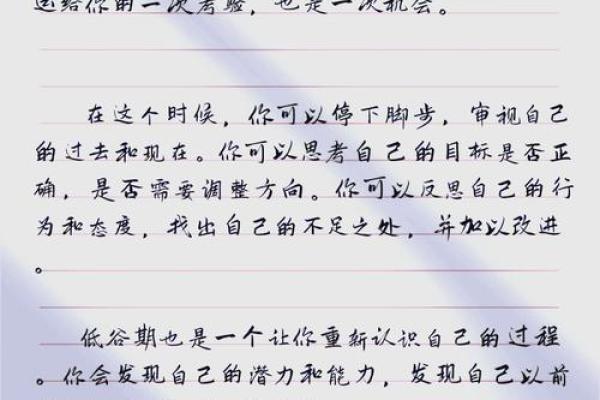 送给你的一次考验，也是一次机会。
在这个时候，你可以停下脚步，审视自己
的过去和现在。你可以思考自己的目标是否正
确，是否需要调整方向。你可以反思自己的行
为和态度，找出自己的不足之处，并加以改进
。
低谷期也是一个让你重新认识自己的过程
。你会发现自己的潜力和能力，发现自己以前